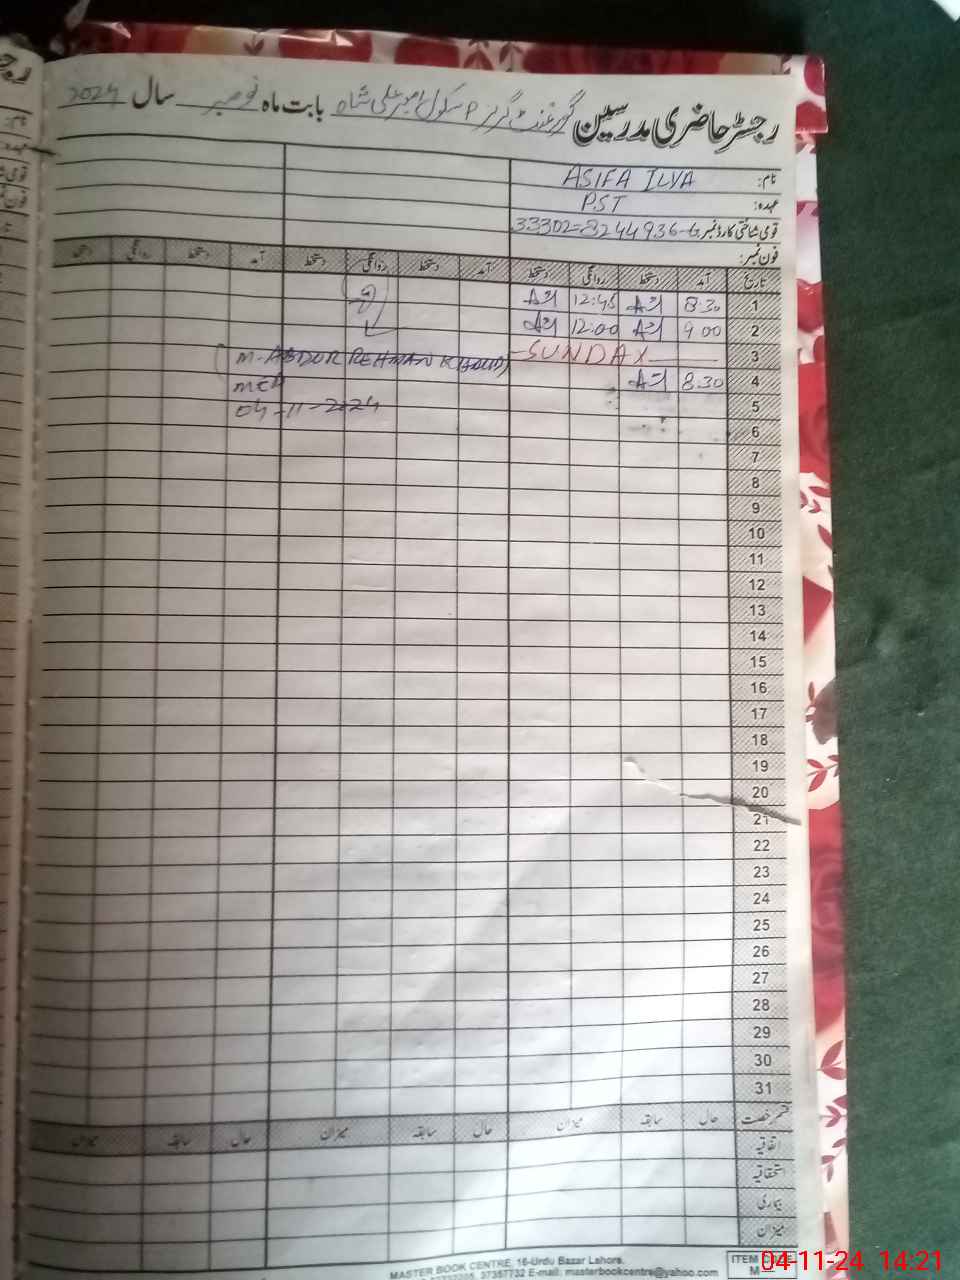 رجسٹر حاضری مدرسین گورنمنٹ گرلز P سکول امیر علی شاہ بابت ماہ نومبر سال 2024
نام: ASIFA
عہدہ: PST
قومی شناختی کارڈ نمبر 33302-8244936-6
فون نمبر:
تاریخ آمد دستخط روانگی دستخط آمد دستخط روانگی دستخط آمد دستخط روانگی دستخط
1 8:30 12:45
2 9:00 12:00
3 SUNDAY
M-ABDUR REHMAN
4 8:30
MEA
5
04-11-2024
6
7
8
9
10
11
12
13
14
15
16
17
18
19
20
21
22
23
24
25
26
27
28
29
30
31
قسم رخصت حال سابقہ میزان حال سابقہ میزان حال سابقہ میزان
اتفاقیہ
استحقاقیہ
بیماری
میزان
MASTER BOOK CENTRE, 16-Urdu Bazar Lahore.
37357732 E-mail: masterbookcentre@yahoo.com
ITEM
04-11-24 14:21